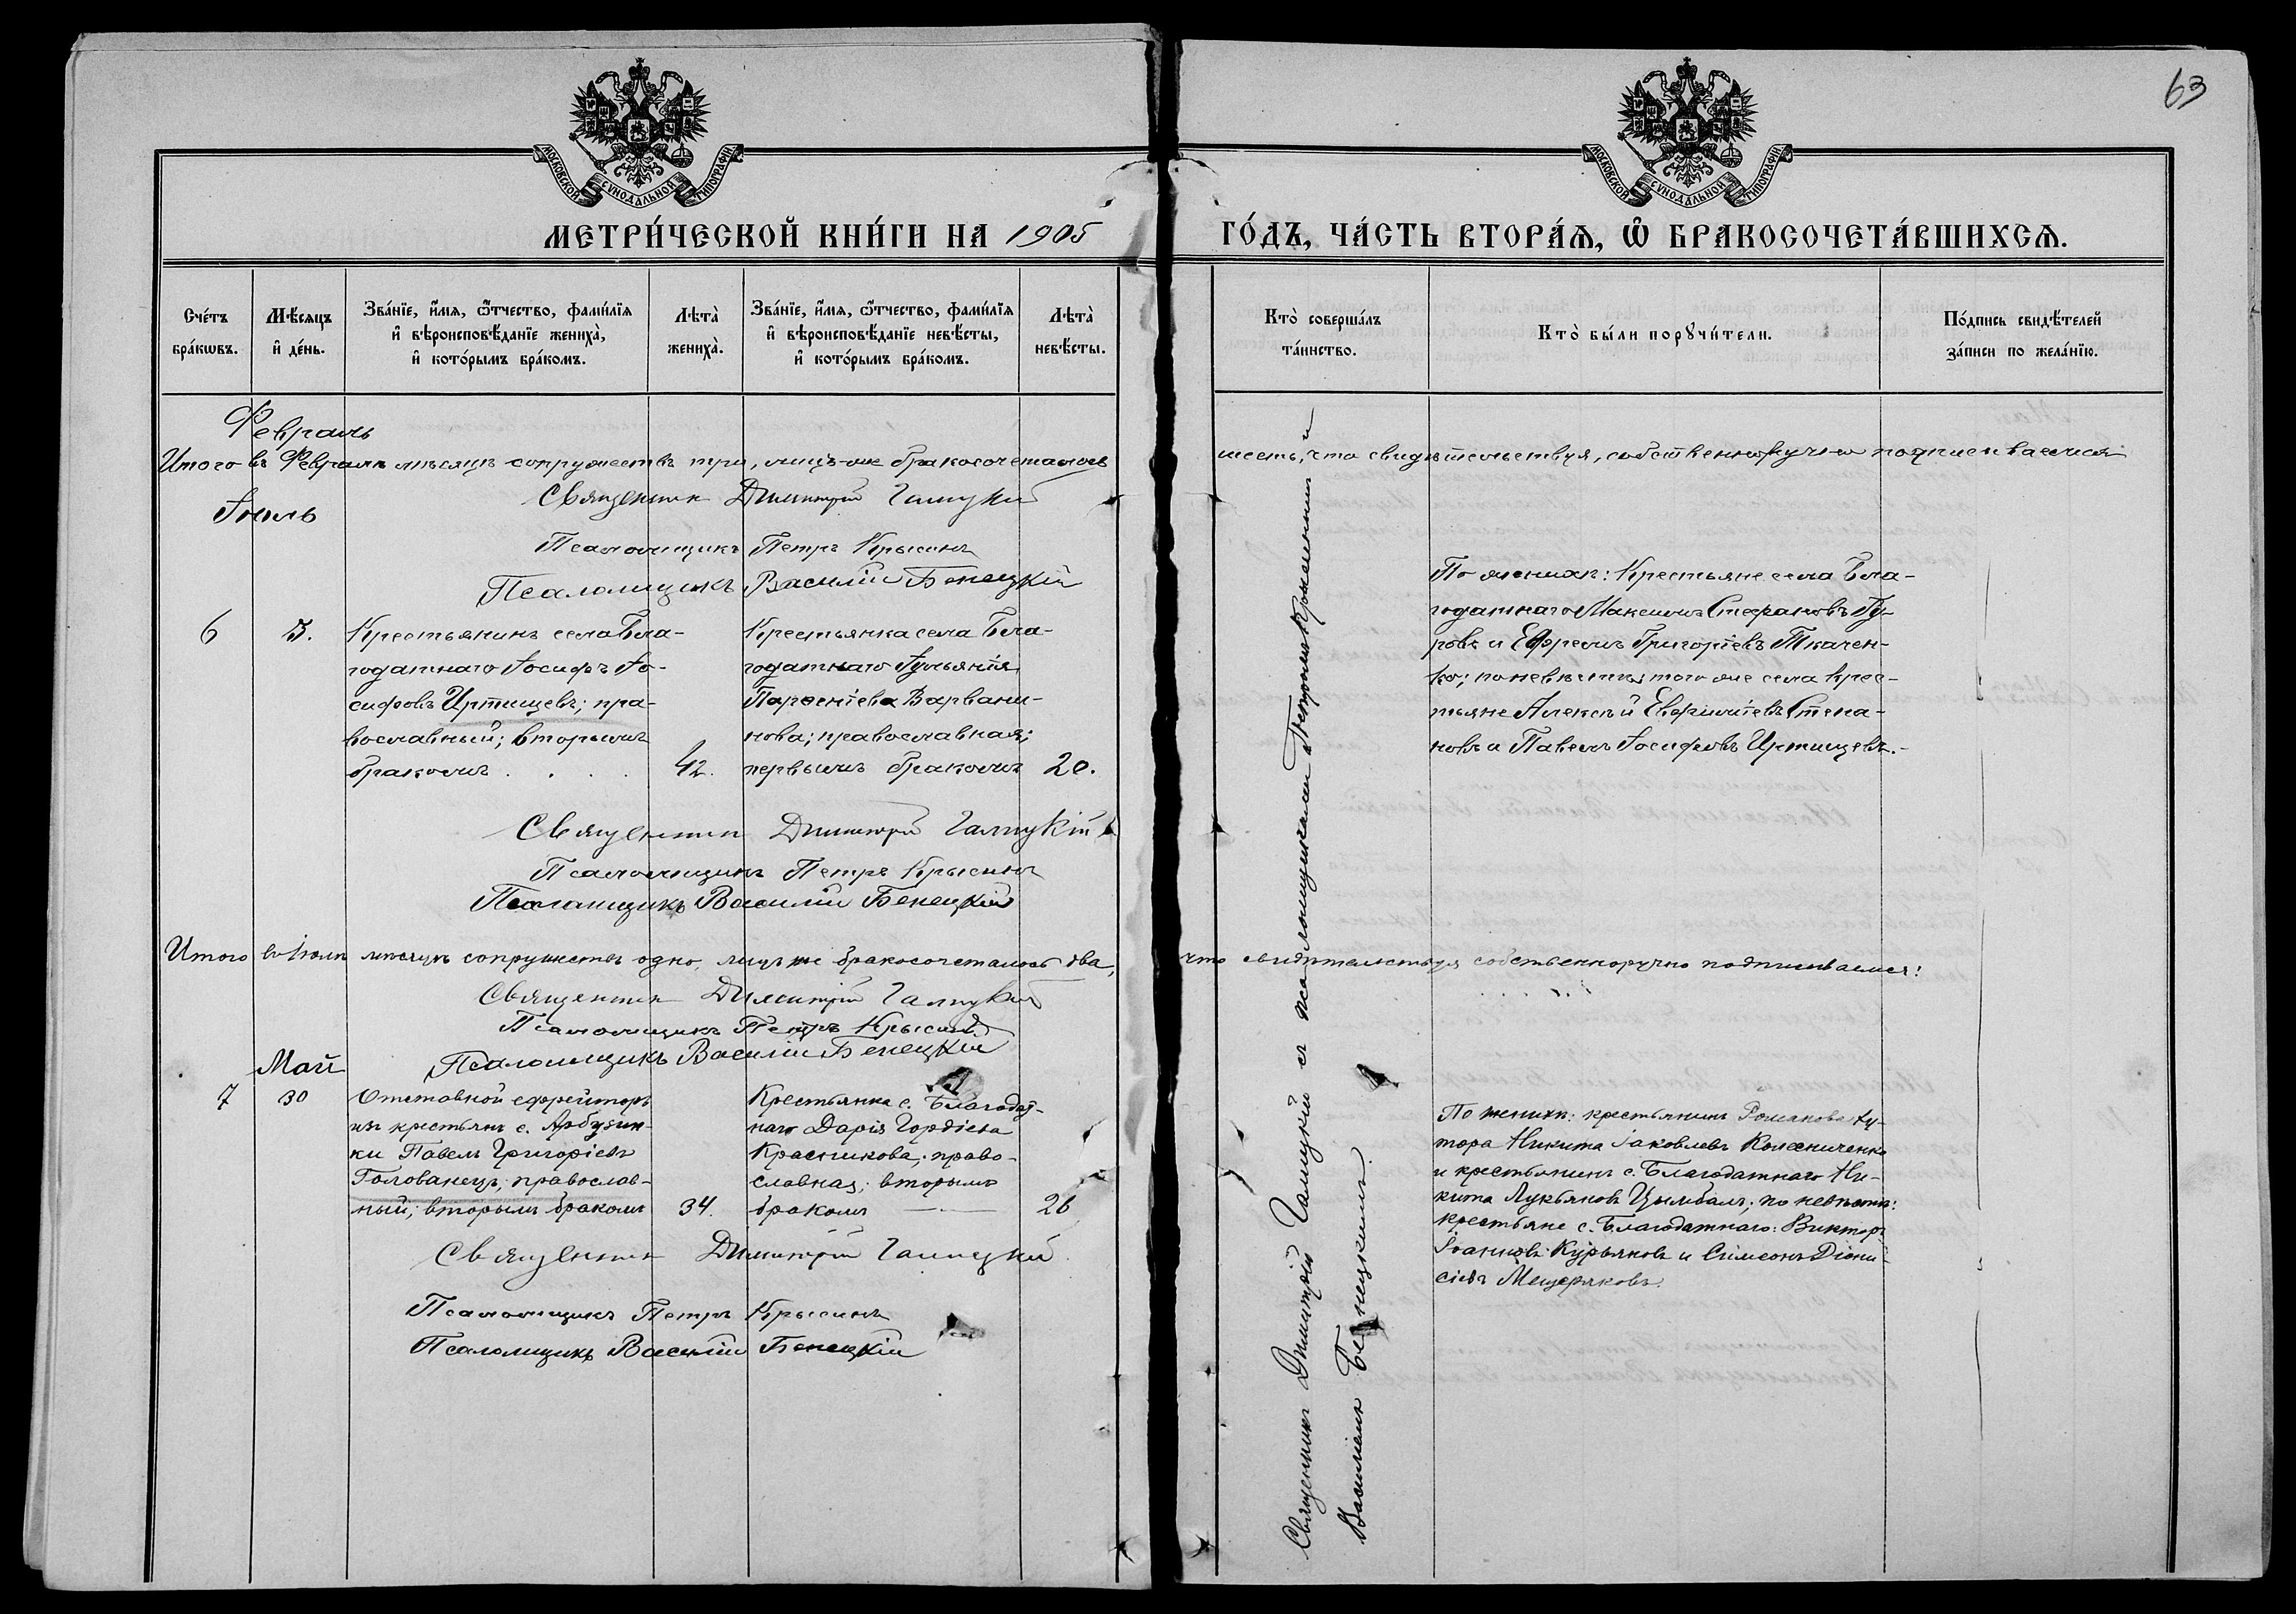 63
МОСКОВСКОЙ СѴНОДАЛЬНОЙ ТИПОГРАФІИ
МОСКОВСКОЙ СѴНОДАЛЬНОЙ ТИПОГРАФІИ
МЕТРИ́ЧЕСКОЙ КНИ́ГИ НА 1905
ГО́ДЪ, ЧА́СТЬ ВТОРА́Ѧ, Ѡ҆ БРАКОСОЧЕТА́ВШИХСѦ.
Сче́тъ бра́кѡвъ.
Мѣ́сяцъ и҆ де́нь.
Зва́нїе, и҆́мѧ, ѻ҆́тчество, фами́лїѧ и҆ вѣроисповѣ́данїе жениха̀, и҆ кото́рымъ бра́комъ.
Лѣта̀ жениха̀.
Зва́нїе, и҆́мѧ, ѻ҆́тчество, фами́лїѧ и҆ вѣроисповѣ́данїе невѣ́сты, и҆ кото́рымъ бра́комъ.
Лѣта̀ невѣ́сты.
Кто̀ соверша́лъ та́инство.
Кто̀ бы́ли порꙋчи́тели.
По́дпись свидѣ́телей за́писи по жела́нїю.
Февраль
Итого въ Февралѣ мѣсяцѣ супружествъ три, лицъ-же бракосочеталось
шесть, что свидѣтельствуя, собственноручно подписываемся
Священник Димитрій Галицкій
Іюль
Псаломщикъ Петръ Крысинъ
Псаломщикъ Василій Бенецкій
6
3.
Крестьянинъ села Бла-
годатнаго Іосифъ Іо-
сифовъ Иртищевъ; пра-
вославный; вторымъ
бракомъ . . . .
42.
Крестьянка села Бла-
годатнаго Іульянія
Парѳеніева Варвани-
нова; православная;
первымъ бракомъ
20.
По женихѣ: Крестьяне села Бла-
годатнаго Максимъ Стефановъ Гу-
ровъ и Ефремъ Григоріевъ Ткачен-
ко; по невѣстѣ; того же села крес-
тьяне Алексѣй Евфиміевъ Степа-
новъ и Павелъ Іосифовъ Иртищевъ.-
Священник Димитрій Галицкій
Псаломщикъ Петръ Крысинъ
Псаломщикъ Василій Бенецкій
Итого въ Іюлѣ мѣсяцѣ супружествъ одно, лицъ же бракосочеталось два,
что свидѣтельствуя собственноручно подписываемся:
Священник Димитрій Галицкій
Псаломщикъ Петръ Крысинъ
Псаломщикъ Василій Бенецкій
Май
7
30
Отставной ефрейторъ
изъ крестьянъ с. Арбузин-
ки Павелъ Григоріевъ
Голованецъ; православ-
ный; вторымъ бракомъ
34.
Крестьянка с. Благодат-
наго Дарія Гордіева
Красникова; право-
славная; вторымъ
бракомъ
26
По женихѣ: крестьянинъ Романова ху-
тора Никита Іаковлевъ Колесниченко
и крестьянинъ с. Благодатнаго Ни-
кита Лукьяновъ Цымбалъ; по невѣстѣ:
крестьяне с. Благодатнаго: Викторъ
Іоанновъ Курьяновъ и Симеонъ Діони-
сіевъ Мещеряковъ.
Священник Димитрій Галицкій
Псаломщикъ Петръ Крысинъ
Псаломщикъ Василій Бенецкій
Священникъ Димитрій Галицкій съ псаломщиками Петромъ Крысинымъ и
Василіемъ Бенецкимъ.